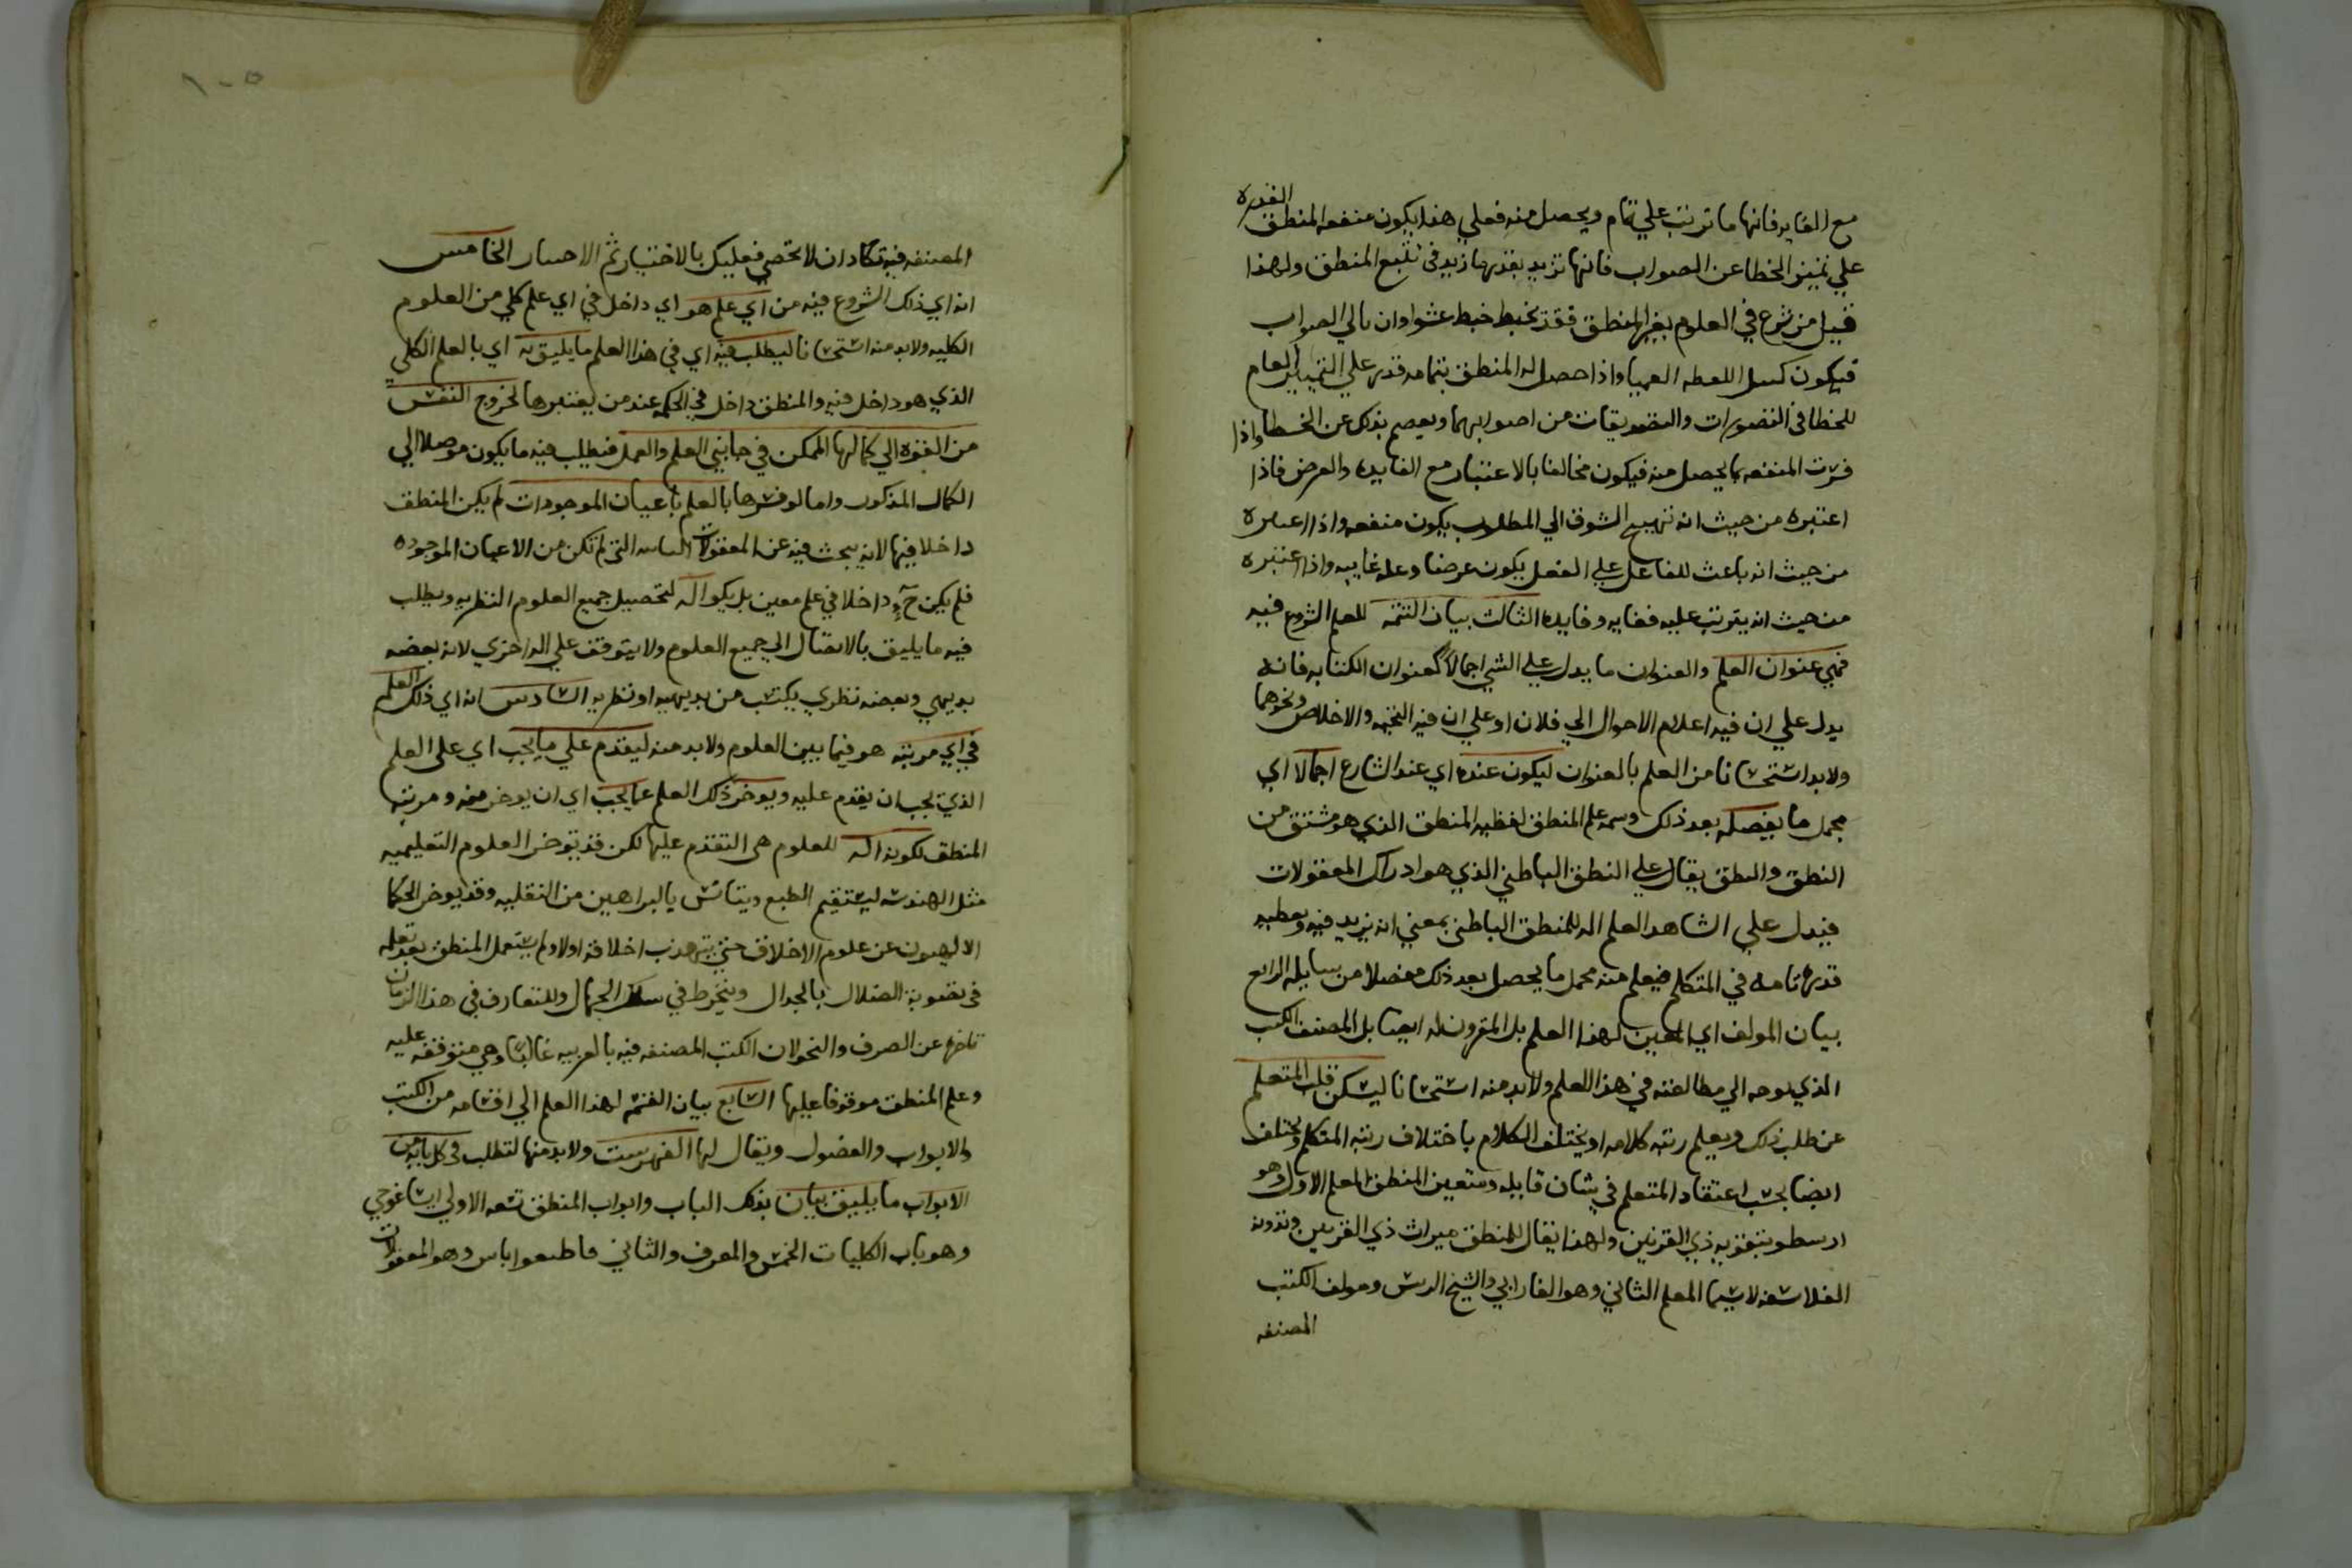 القدرة
مع الغايه فانها ما ترتب علي تمام ويحصل منه فعلي هذا يكون منفعه المنطق
علي تمييز الخطا عن الصواب فانها تزيد بقدرها زيد في تتبع المنطق ولهذا
قيل من شرع في العلوم بغير المنطق فقد تخبط خبط عشوا وان نا لي الصواب
فيكون العميا واذا حصل له المنطق بتمامه قدر علي التمييز العام
للخطا في التصورات والتصديقات من اصوابهما ويعصم بذلك عن الخطا واذا
فسرت المنفعه بما يحصل منه فيكون مخالفا بالاعتبار مع الفايده والعرض فاذا
اعتبره من حيث انه تهييج الشوق الي المطلوب يكون منفعه واذا اعتبره
من حيث انه باعث للفاعل علي الفعل يكون عرضا وعله غاييه واذا اعتبره
من حيث انه يترتب عليه فغايه وفايده الثالث بيان التسمه للعلم الشروع فيه
فهي عنوان العلم والعنوان ما يدل علي الشي اجمالا كعنوان الكتابه فانه
يدل علي ان فيه اعلام الاحوال الي فلان او علي ان فيه التحيه والاخلاص ونحوهما
ولابد استحسانا من العلم بالعنوان ليكون عنده اي عند الشارع اجمالا اي
مجمل ما يفصله بعد ذلك وسمه علم المنطق لفظيه المنطق الذي هو مشتق من
النطق والنطق يقال علي النطق الباطني الذي هو ادراك المعقولات
فيدل علي الشاهد العلم اله للمنطق الباطني بمعني انه يزيد فيه ويعطيه
قدره تامه في المتكلم فيعلم منه مجمل ما يحصل بعد ذلك مفصلا من سايله الرابع
بيان المولف اي المعين لهذا العلم بل المقرون له ايضا بل المصنف الكتب
الذي يوجه الي مطالعته في هذا العلم ولابد منه استحسانا ليسكن قلب المتعلم
عن طلب ذلك ويعلم رتبه كلامه او يختلف الكلام باختلاف رتبه المتكلم ويختلف
ايضا بحسب اعتقاد المتعلم في شان قايله ومتعين المنطق المعلم الاول وهو
ارسطو بتقويه ذي القرنين ولهذا يقال للمنطق ميراث ذي القرنين وتدوينه
الفلاسفه لاسيما المعلم الثاني وهو الفارابي والشيخ الريس ومولف الكتب
المصنفه
١٠٥
المصنفه فيه تكاد ان لا تحصي فعليك بالاختبار ثم الاختيار الخامس
انه اي ذلك الشروع فيه من اي علم هو اي داخل في اي علم كلي من العلوم
الكليه ولابد منه استحسانا ليطلب فيه اي في هذا العلم ما يليق به اي بالعلم الكلي
الذي هو داخل فيه والمنطق داخل في الحكمه عند من يفسرها لخروج النفس
من القوه الي كمالها الممكن في جانبي العلم والعمل فيطلب فيه ما يكون موصلا الي
الكمال المذكور واما لو فسرها بالعلم باعيان الموجودات لم يكن المنطق
داخلا فيها لانه يبحث فيه عن المعقولات الثانيه التي لم تكن من الاعيان الموجوده
فلم يكن ح داخلا في علم معين بل يكون اله لتحصيل جميع العلوم النظريه ويطلب
فيه ما يليق بالايصال الي جميع العلوم ولا يتوقف علي اله اخري لانه بعضه
بديهي وبعضه نظري يكتسب من بديهيه او نظريه السادس انه اي ذلك العلم
في اي مرتبه هو فيما بين العلوم ولابد منه ليقدم علي ما يجب اي علي العلم
الذي يجب ان يقدم عليه ويوخر ذلك العلم عما يجب اي ان يوخر منه ومرتبه
المنطق لكونه اله للعلوم هي التقدم عليها لكن قد يوخر العلوم التعليميه
مثل الهندسه ليستقيم الطبع ويتانس بالبراهين من النقليه وقد يوخر الحكما
الالهيون عن علوم الاخلاق حتي يتهذب اخلاقه اولا ولم يستعمل المنطق بعد تعلمه
في تقويه الضلال بالجدال وينخرط في سلك الجهال وللتعارف في هذا الزمان
تاخره عن الصرف والنحو لان الكتب المصنفه فيه بالعربيه غالبا وهي متوقفه عليه
وعلم المنطق موقوفا عليها السابع بيان القسمه لهذا العلم الي اقسامه من الكتب
والابواب والفصول ويقال لها الفهرست ولابد منها لتطلب في كل باب من
الابواب ما يليق بيان بذلك الباب وابواب المنطق تسعه الاولي ايساغوجي
وهو باب الكليات الخمس والمعرف والثاني قاطيغورياس وهو المعقولات